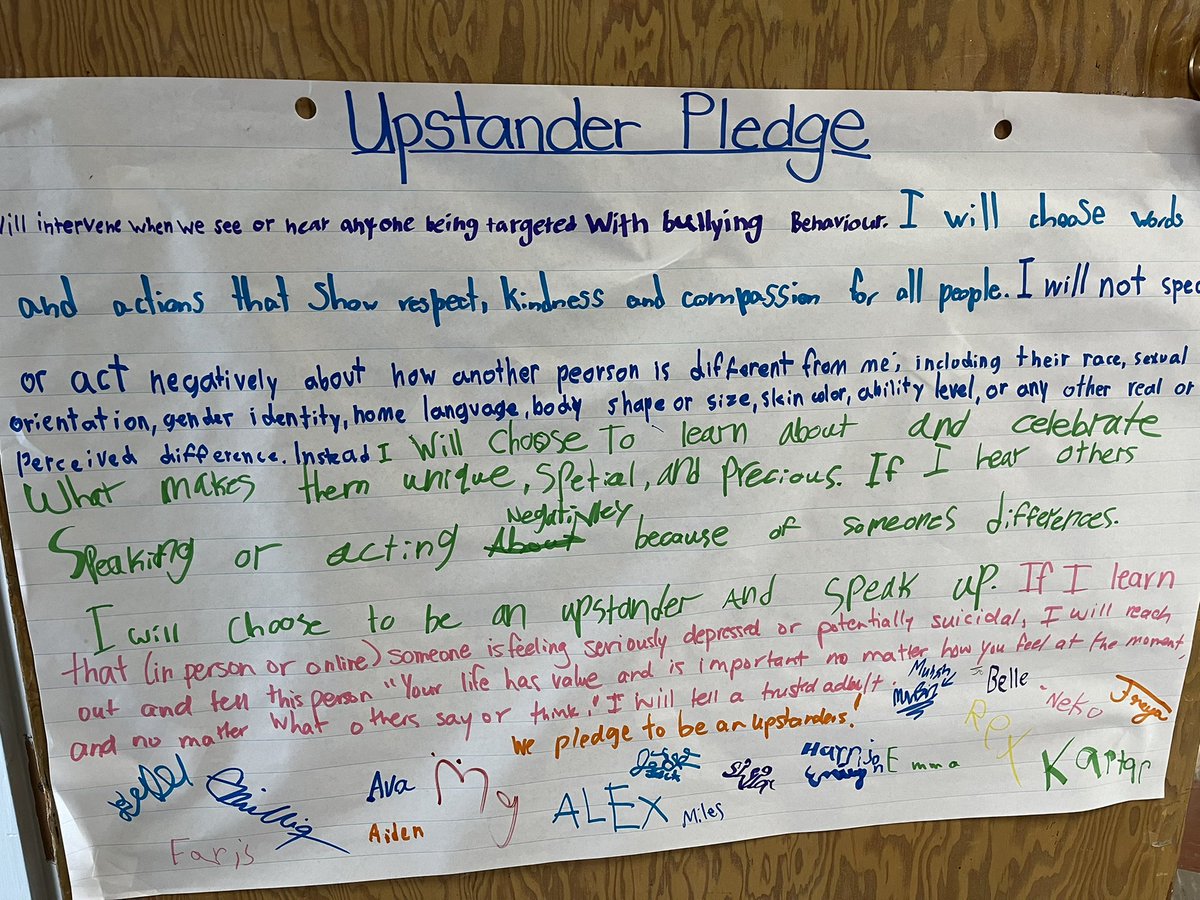 Upstander Pledge
Will intervene when we see or hear anyone being targeted with bullying Behaviour. I will choose words
and actions that show respect, kindness and compassion for all people. I will not spec
or act negatively about how another peorson is different from me, including their race, sexual
orientation, gender identity, home language, body shape or size, skin color, ability level, or any other real or
perceived difference. Instead I Will Choose To learn about and celebrate
What makes them unique, Spetial, and Precious. If I hear others
Negativley
Speaking or acting About because of someones differences.
I will choose to be an upstander and speak up. If I learn
that (in person or online) someone is feeling seriously depressed or potentially suicidal, I will reach
out and tell this person "Your life has value and is important no matter how you feel at the moment,
and no matter what others say or think." I will tell a trusted adbult.
We pledge to be an upstanders!
Belle
Neko
Freya
Rex
Harrison
Emma
Kartar
Ava
Aiden
ALEX
Miles
Faris